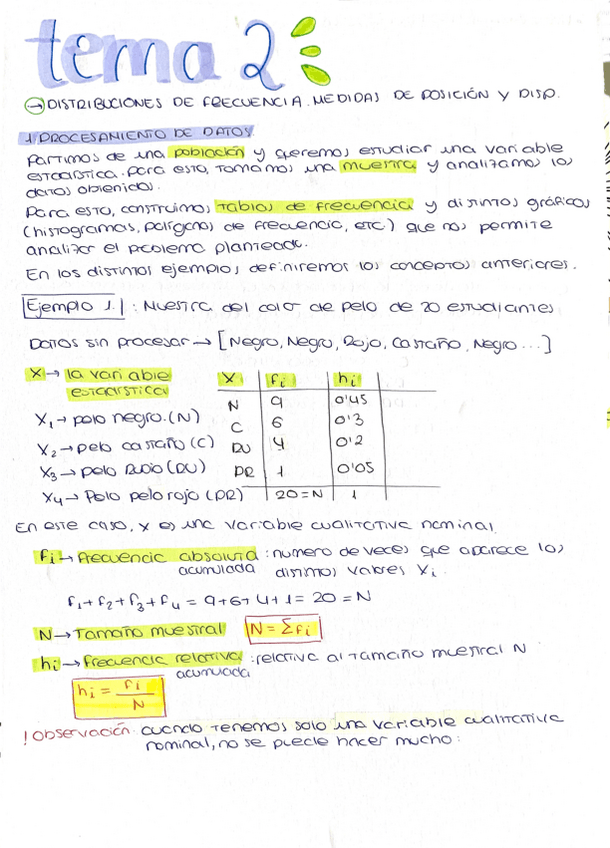 tema 2
→ DISTRIBUCIONES DE FRECUENCIA. MEDIDAS DE POSICIÓN Y DISP.
1. PROCESAMIENTO DE DATOS.
Partimos de una población y queremos estudiar una variable
estadística. Para esto, tomamos una muestra y analizamos los
datos obtenidos.
Para esto, construimos tablas de frecuencia y distintos gráficos
(histogramas, polígonos de frecuencia, etc) que nos permite
analizar el problema planteado.
En los distintos ejemplos definiremos los conceptos anteriores.
Ejemplo 1. : Muestra del color de pelo de 20 estudiantes
Datos sin procesar → [Negro, Negro, Rojo, Castaño, Negro ...]
X → la variable estadística
X fi hi
N 9 0'45
C 6 0'3
RU 4 0'2
PR 1 0'05
20 = N 1
X1 → pelo negro. (N)
X2 → pelo castaño (C)
X3 → pelo Rubio (RU)
X4 → Pelo pelorojo (PR)
En este caso, X es una variable cualitativa nominal.
fi → frecuencia absoluta : numero de veces que aparece los
acumulada distintos valores Xi.
f1 + f2 + f3 + f4 = 9 + 6 + 4 + 1 = 20 = N
N → Tamaño muestral N = Σfi
hi → frecuencia relativa : relativa al tamaño muestral N
acumulada
hi = fi / N
! Observación: cuando tenemos solo una variable cualitativa
nominal, no se puede hacer mucho: